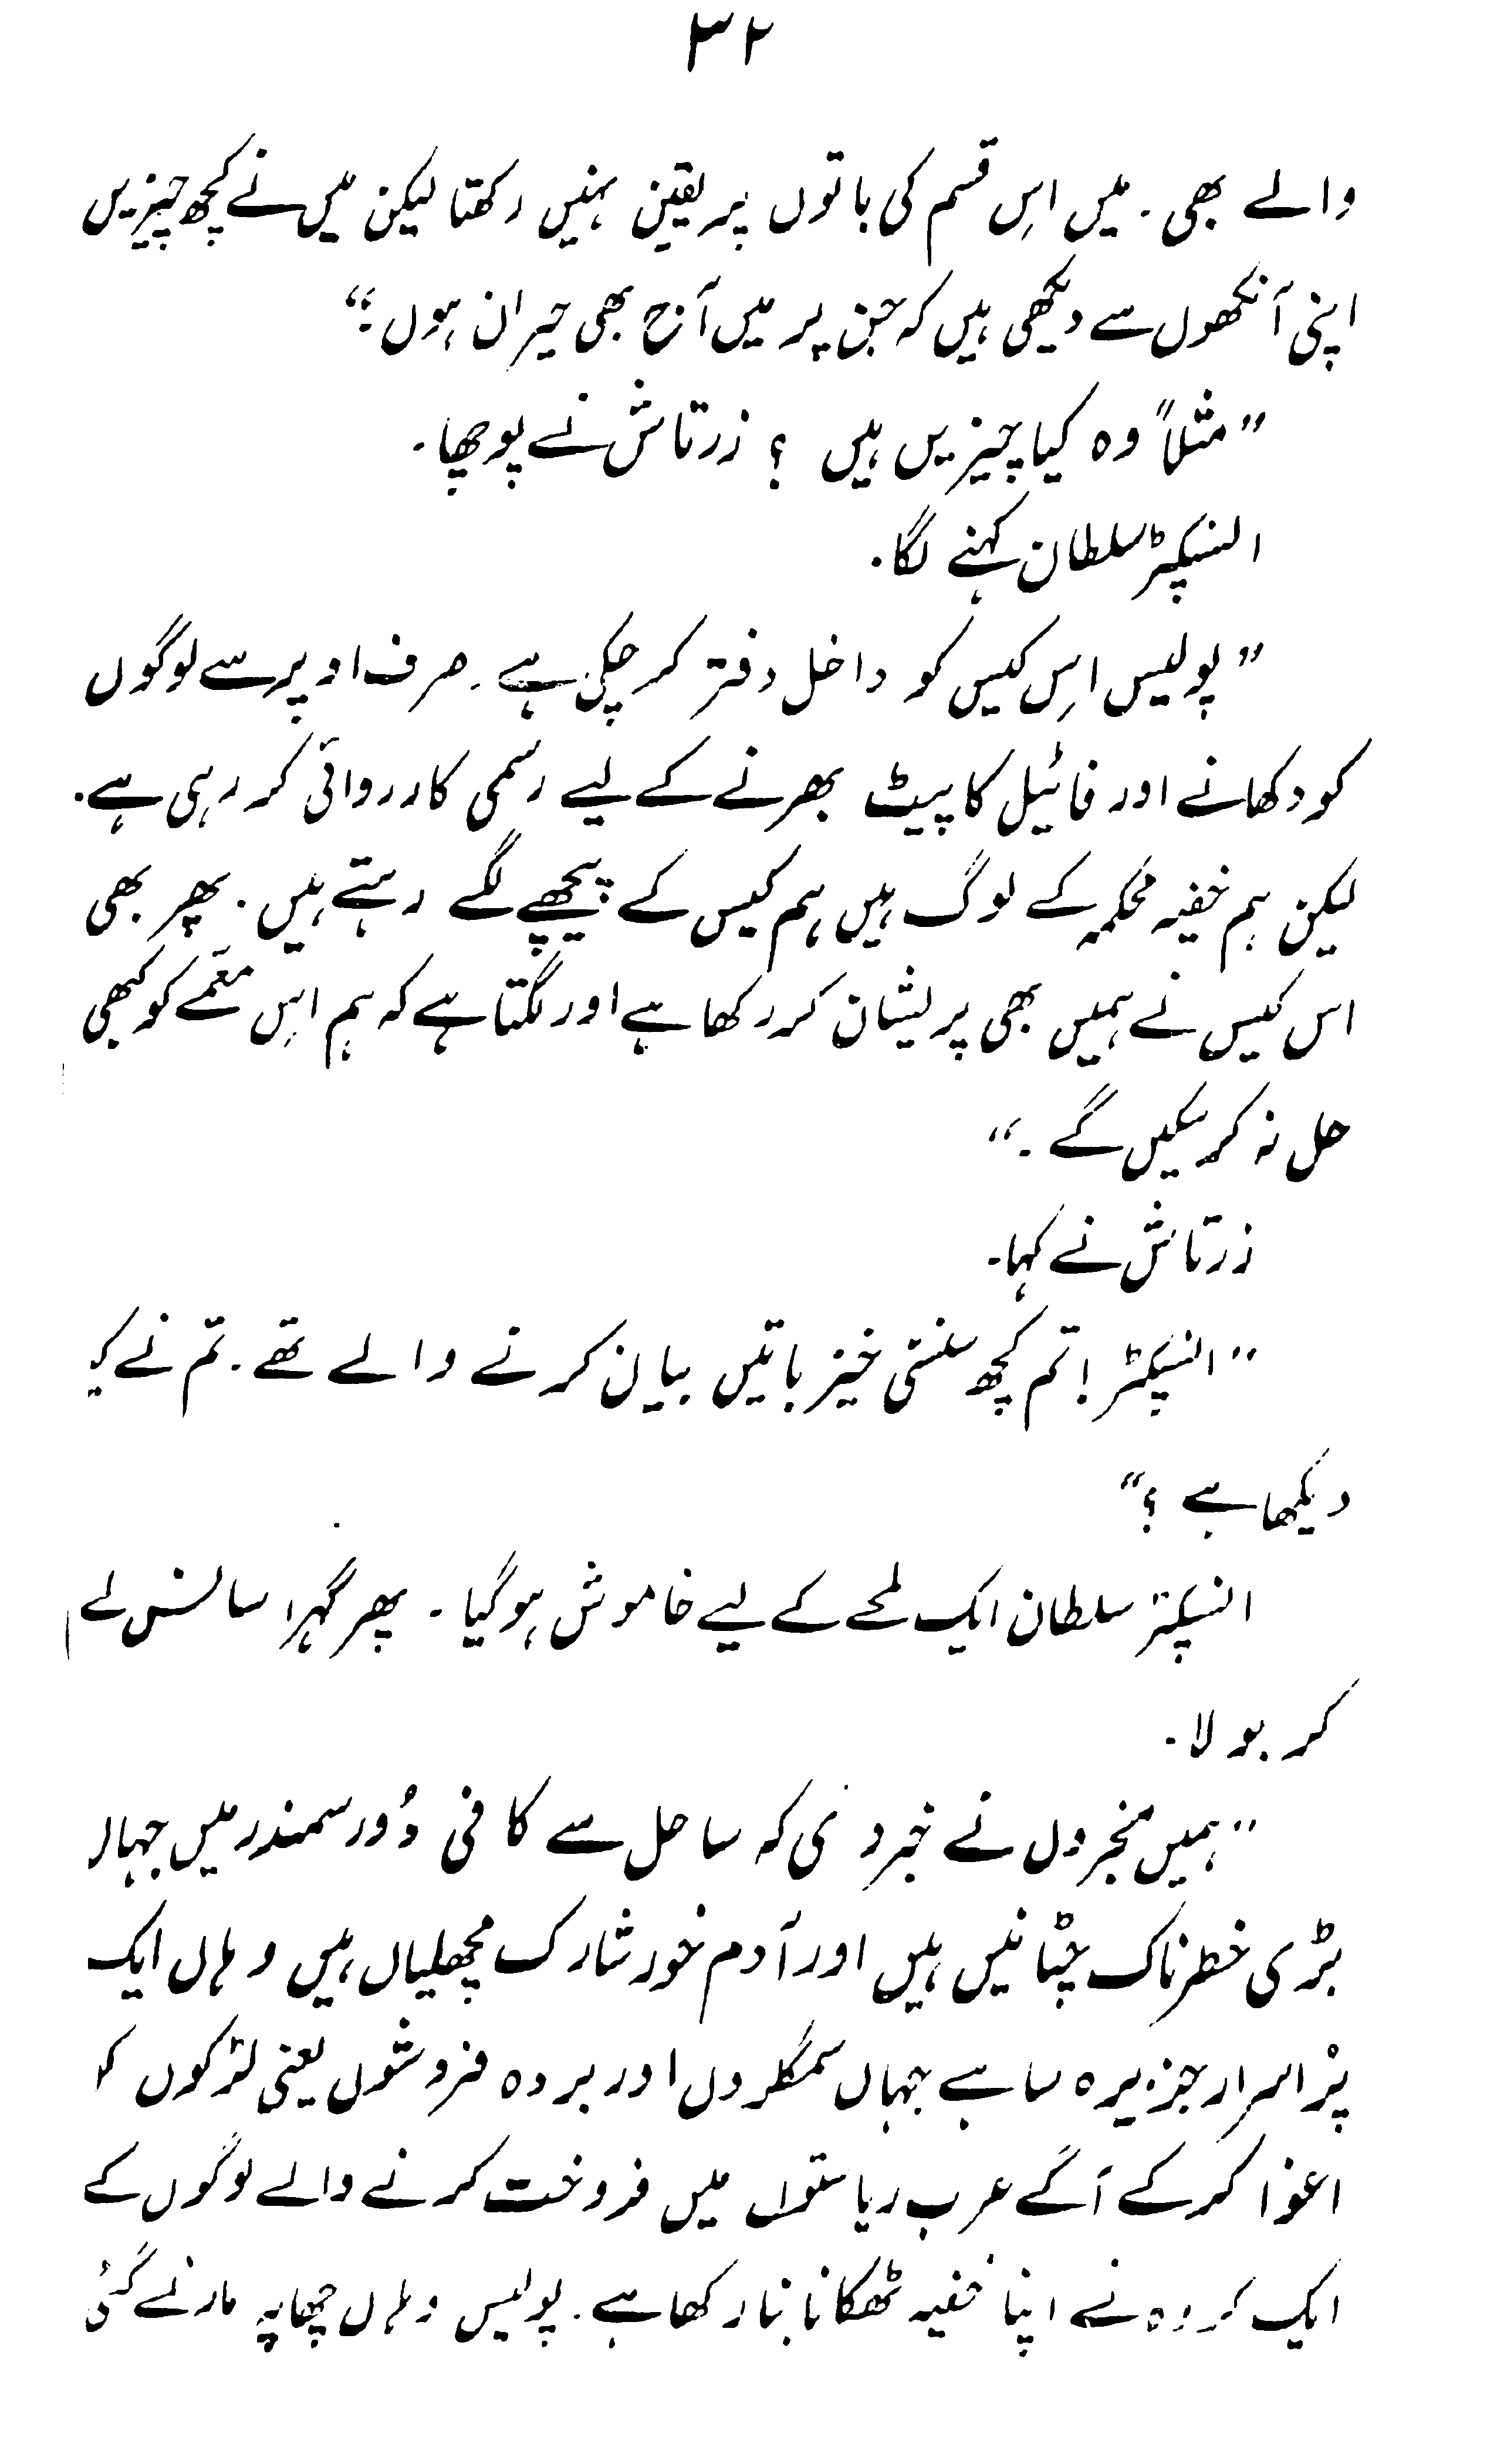 ۳۲
والے بھی۔ میں اِس قسم کی باتوں پر یقین نہیں رکھتا لیکن میں نے کچھ چیزیں
اپنی آنکھوں سے دیکھی ہیں کہ جن پر میں آج بھی حیران ہوں۔“
”مثلاً وہ کیا چیزیں ہیں ؟ زرتاش نے پوچھا۔
انسپکٹر سلطان کہنے لگا۔
”پولیس اِس کیس کو داخل دفتر کر چکی ہے۔ صرف اوپر سے لوگوں
کو دکھانے اور فائیل کا پیٹ بھرنے کے لیے رسمی کارروائی کر رہی ہے۔
لیکن ہم خفیہ محکمہ کے لوگ ہیں ہم کیس کے پیچھے لگے رہتے ہیں۔ پھر بھی
اس کیس نے ہمیں بھی پریشان کر رکھا ہے اور لگتا ہے کہ ہم اِس معّمے کو کبھی
حل نہ کر سکیں گے۔“
زرتاش نے کہا۔
”انسپکٹر! تم کچھ سنسنی خیز باتیں بیان کرنے والے تھے۔ تم نے
دیکھا ہے ؟“
انسپکٹر سلطان ایک لمحے کے لیے خاموش ہو گیا۔ پھر گہرا سانس لے
کر بولا۔
”ہمیں مخبروں نے خبر دی کہ ساحل سے کافی دُور سمندر میں جہاں
بڑی خطرناک چٹانیں ہیں اور آدم خور شارک مچھلیاں ہیں وہاں ایک
پُراسرار جزیرہ سا ہے جہاں سمگلروں اور بردہ فروشوں یعنی لڑکوں کو
اغوا کر کے آگے عرب ریاستوں میں فروخت کرنے والے لوگوں کے
ایک گروہ نے اپنا خفیہ ٹھکانا بنا رکھا ہے۔ پولیس وہاں چھاپہ مارنے گئی